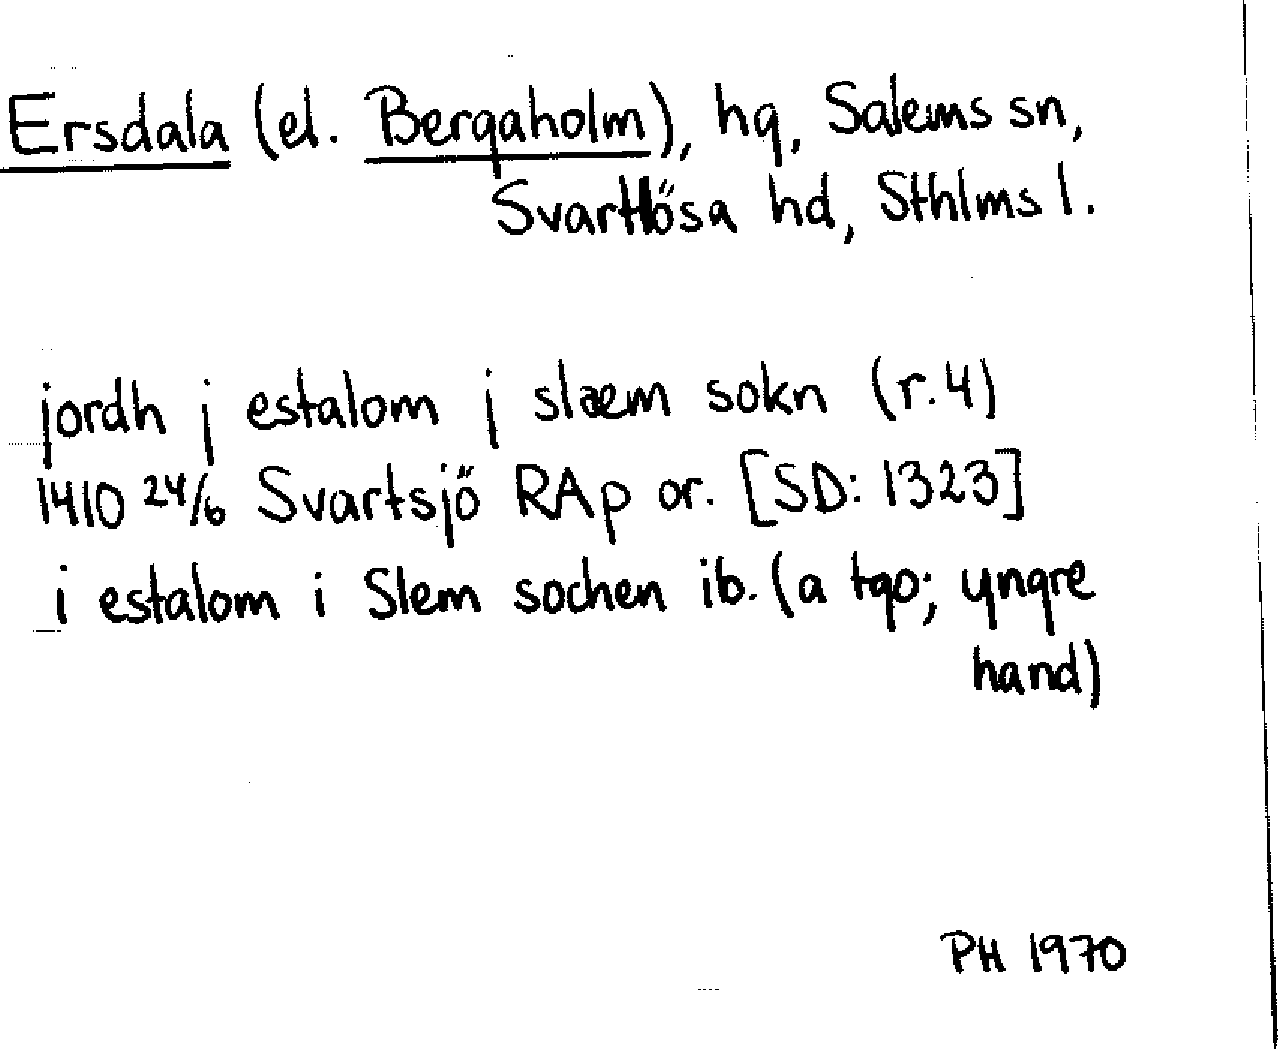 Ersdala (el. Bergaholm), hg, Salems sn,
Svartlösa hd, Sthlms l.
jordh j estalom j slæm sokn (r. 4)
1410 24/6 Svartsjö RAp or. [SD: 1323]
i estalom i Slem sochen ib. (a tgo; yngre
hand)
PH 1970